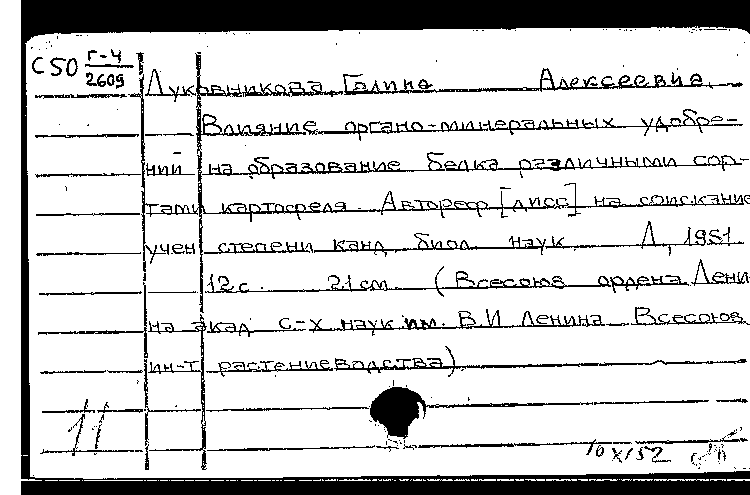 С50 Г-4
2609
Луковникова, Галина Алексеевна.
Влияние органо-минеральных удобре-
ний на образование белка различными сор-
тами картофеля. Автореф. [дисс] на соискание
учен степени канд. биол. наук. Л., 1951.
12 с. 21 см. (Всесоюз ордена Лени-
на акад с-х наук им. В.И Ленина Всесоюз.
ин-т растениеводства)
11
10 X/52